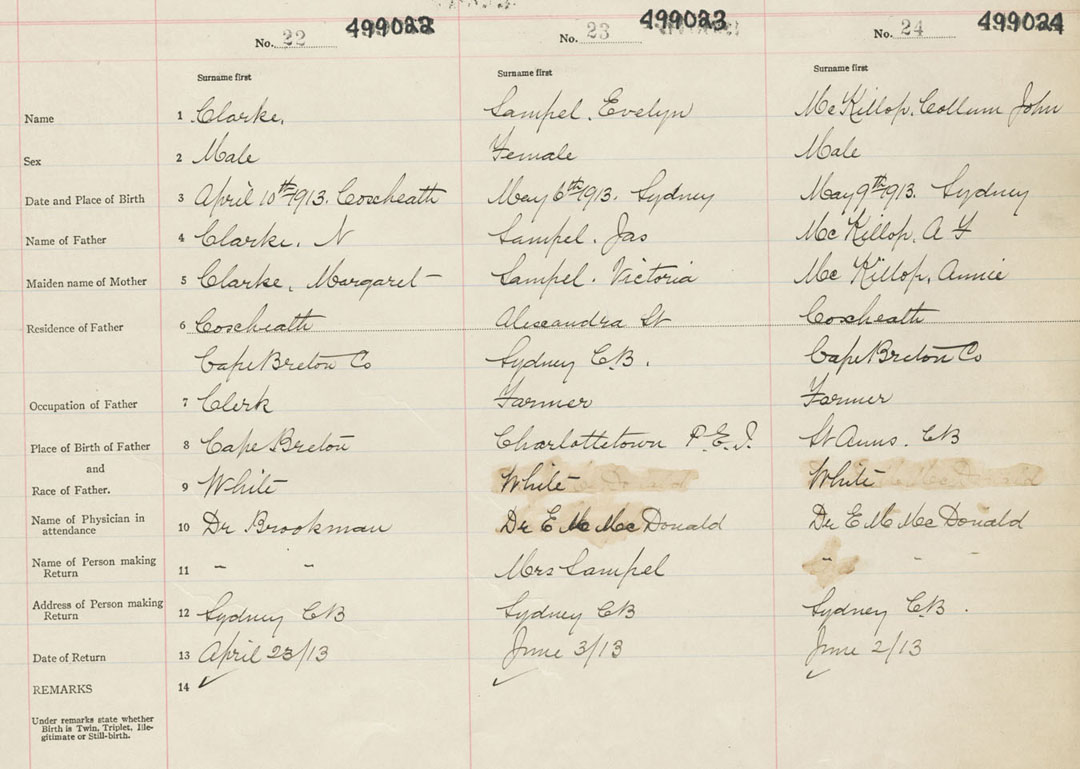 No. 22 499022 No. 23 499023 No. 24 499024
Surname first Surname first Surname first
Name 1 Clarke. Sampel. Evelyn McKillop. Collum John
Sex 2 Male Female Male
Date and Place of Birth 3 April 10th 1913. Coxheath May 6th 1913. Sydney May 9th 1913. Sydney
Name of Father 4 Clarke. N Sampel. Jas McKillop. A F
Maiden name of Mother 5 Clarke, Margaret Sampel. Victoria McKillop, Annie
Residence of Father 6 Coxheath Alexandra St Coxheath
Cape Breton Co Sydney C.B. Cape Breton Co
Occupation of Father 7 Clerk Farmer Farmer
Place of Birth of Father 8 Cape Breton Charlottetown P.E.I. St Anns. CB
and
Race of Father. 9 White White White
Name of Physician in
attendance 10 Dr Brookman Dr E M McDonald Dr E M McDonald
Name of Person making
Return 11 " " Mrs Sampel " "
Address of Person making
Return 12 Sydney CB Sydney CB Sydney C.B.
Date of Return 13 April 23/13 June 3/13 June 2/13
REMARKS 14 ✓ ✓ ✓
Under remarks state whether
Birth is Twin, Triplet, Ille-
gitimate or Still-birth.